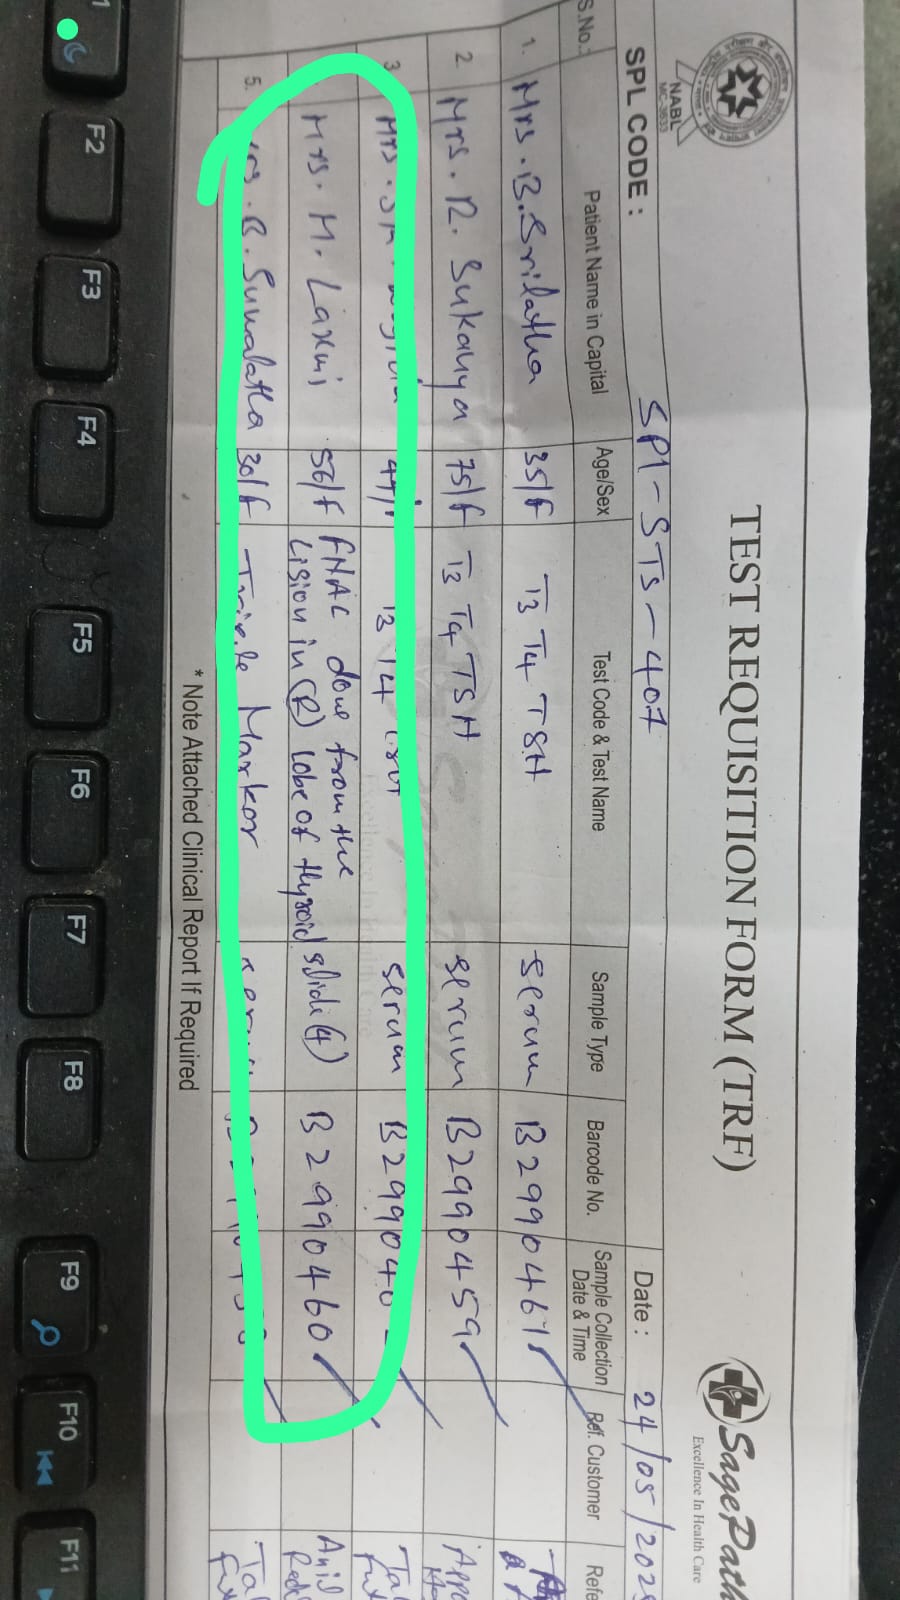 NABL
MC-3633
TEST REQUISITION FORM (TRF)
SagePath
Excellence In Health Care
SPL CODE : SPL-STS-407
Date : 24/05/202
S.No. Patient Name in Capital Age/Sex Test Code & Test Name Sample Type Barcode No. Sample Collection Date & Time Ref. Customer Refe
1. Mrs. B. Srilatha 35/F T3 T4 TSH serum B2990461
2. Mrs. R. Sukanya 75/F T3 T4 TSH serum B2990459
3 Mrs. T3 T4 serum B29904
Mrs. M. Laxmi 56/F FNAC done from the
Lision in (R) lobe of thyroid slide(4) B2990460 Anil
5. B. Sumalatha 30/F Triple Markor
* Note Attached Clinical Report If Required
F2
F3
F4
F5
F6
F7
F8
F9
F10
F11